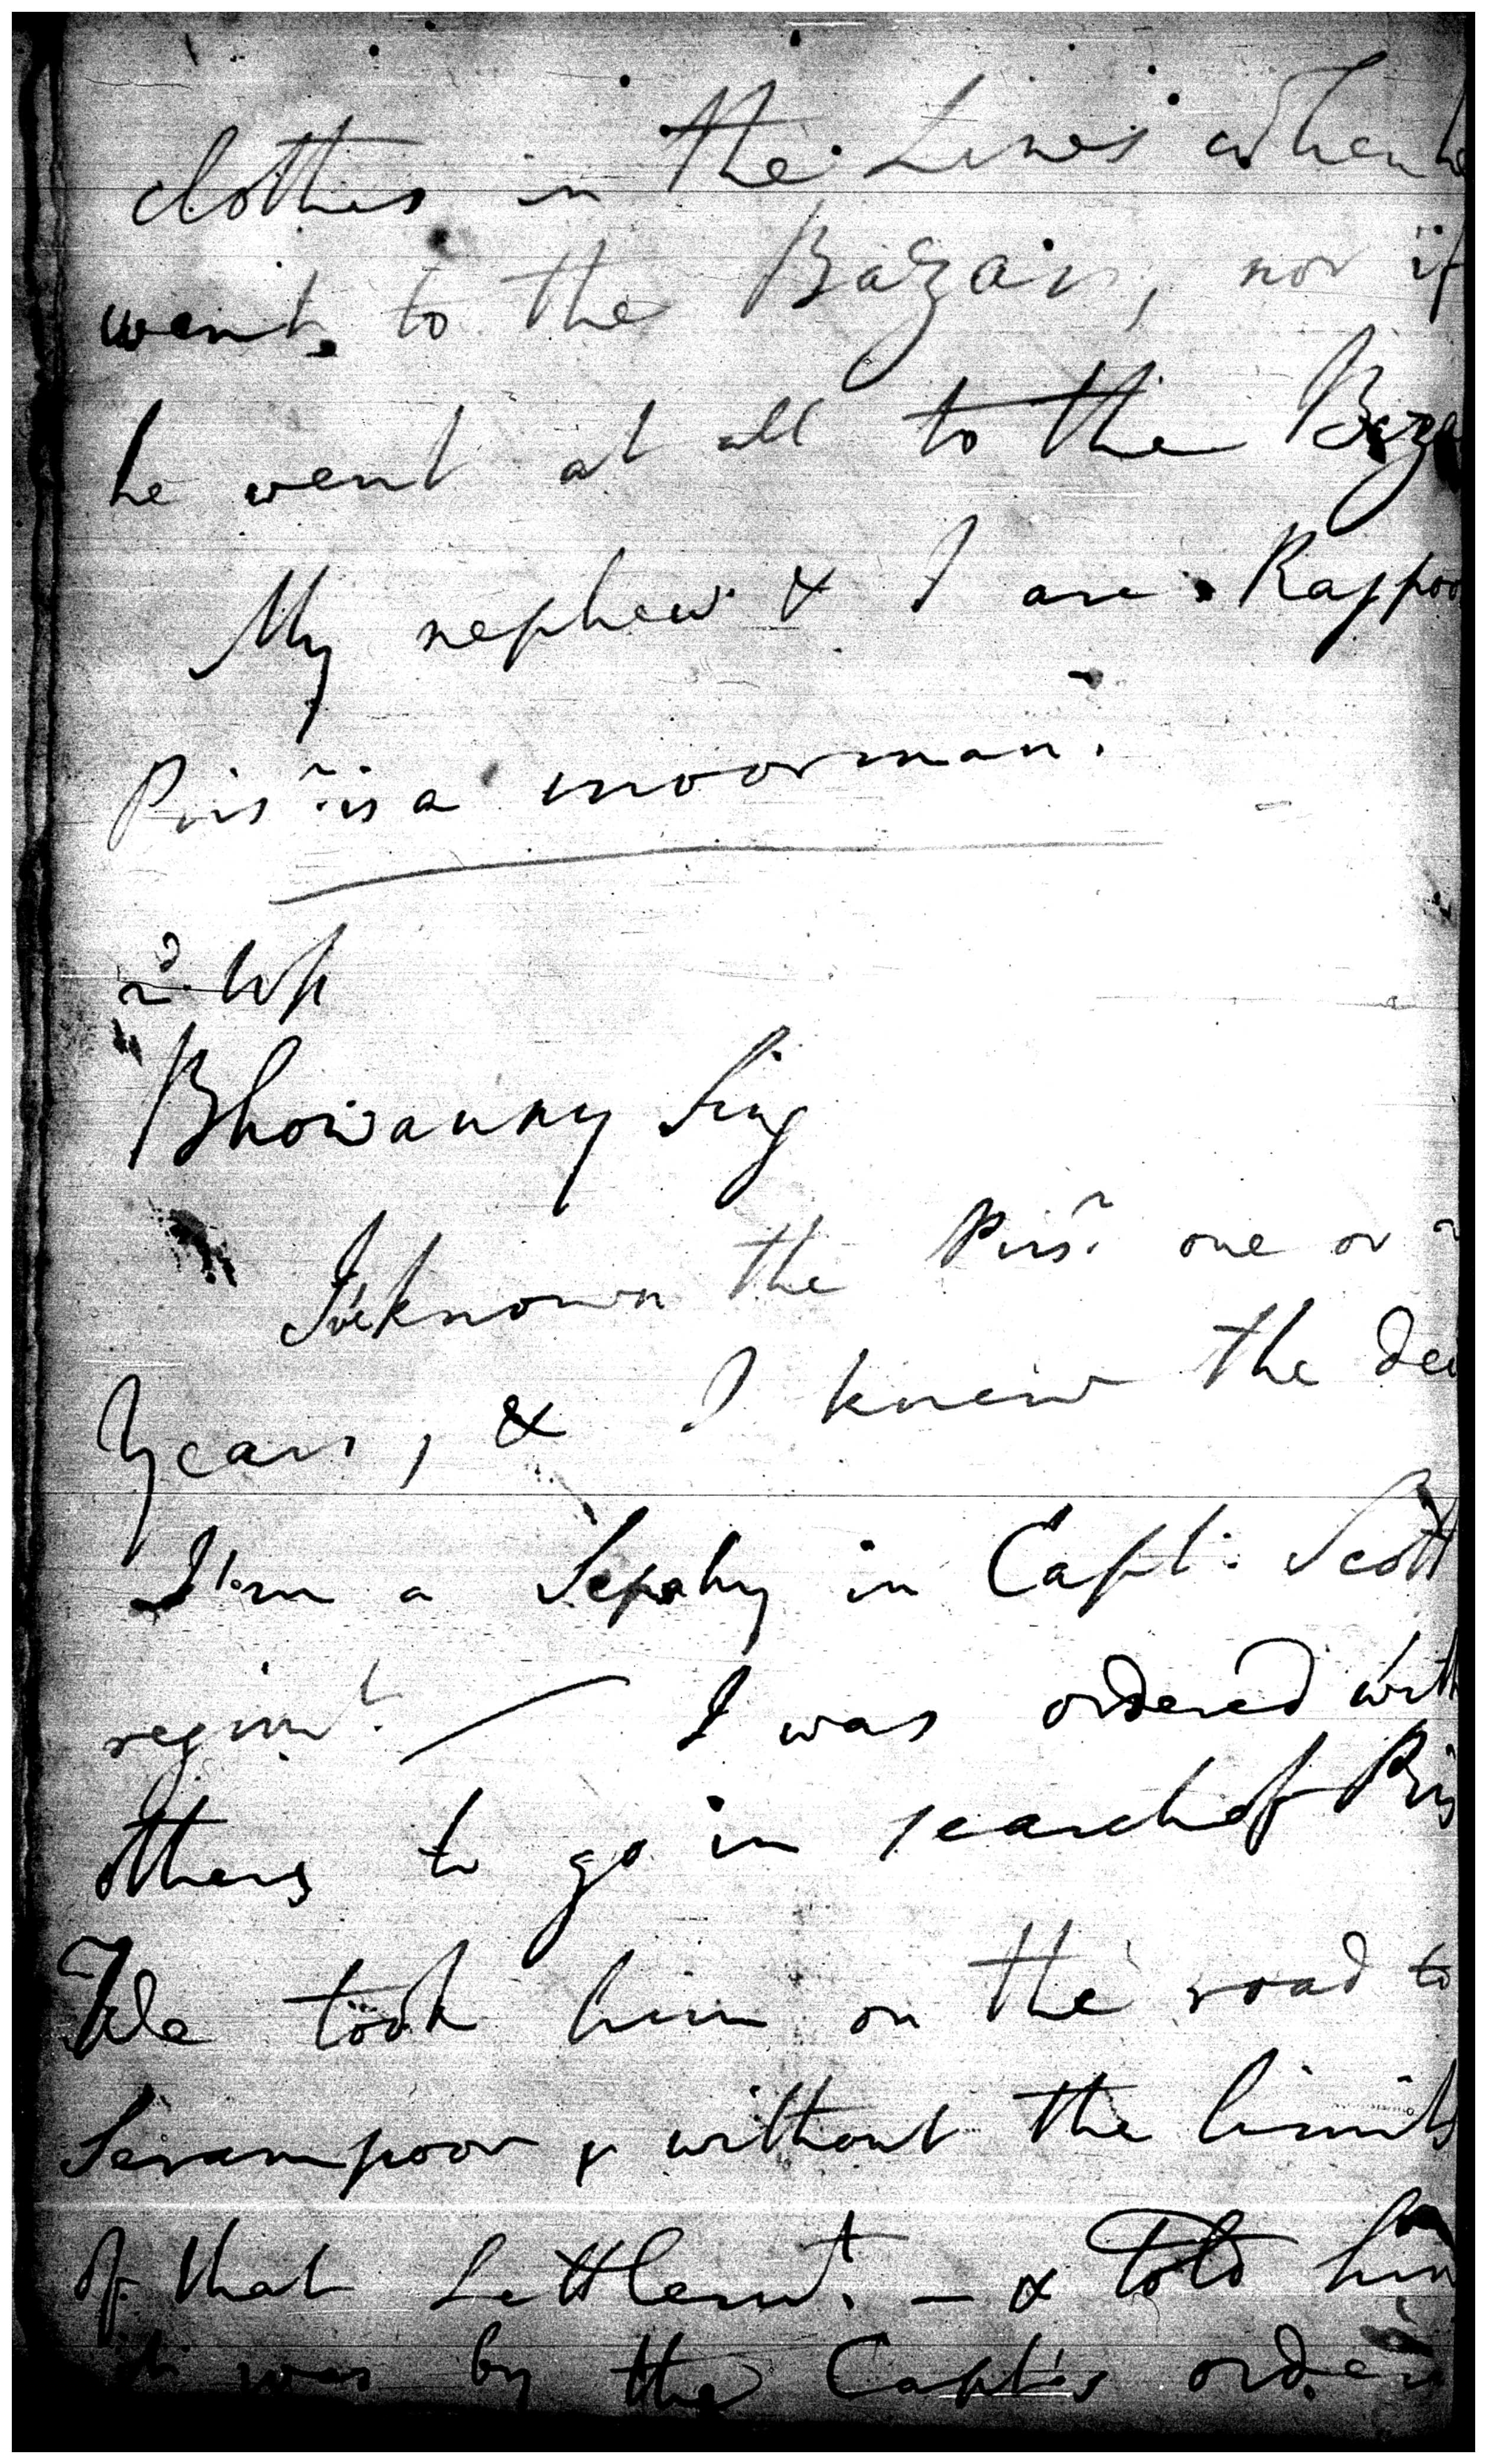 clothes in the Lines when he
went to the Bazar, nor if
he went at all to the Baza
My nephew & I are Rajpoo
Pris.r is a moorman.
2.d Wss
Bhowanny Sing
I've known the Pris.r one or 2
Years, & I knew the dec
I'm a Sepahy in Capt. Scott
regim.t — I was ordered with
others to go in search of Pris
We took him on the road to
Serampoor & without the limits
of that Settlem.t — & told him
it was by the Capt's orders